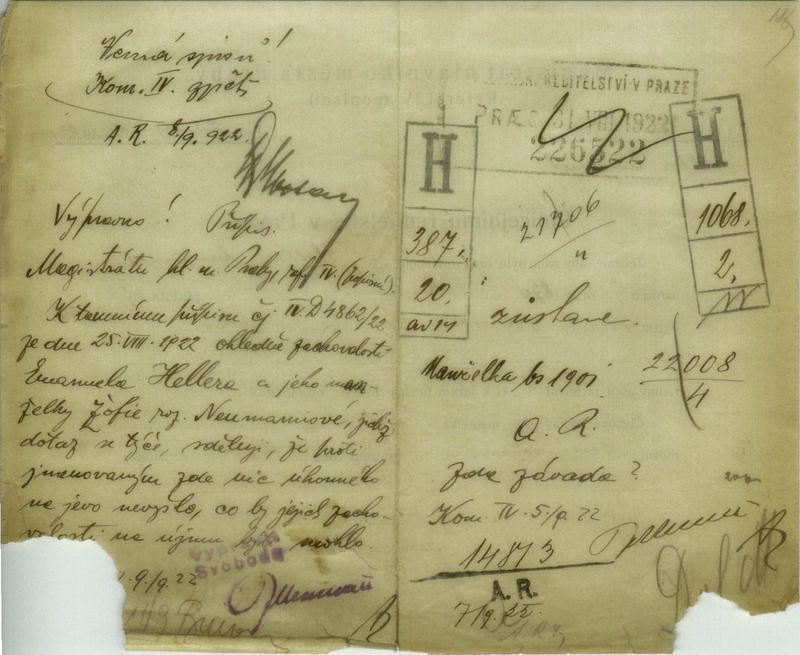 Verná spisů!
Kom. IV. zpět
A. R. 8/9. 922.
Výpravno! Přípis.
Magistrátu hl. m. Prahy, ref. IV. (popisní).
K tamnímu přípisu čj. IV. D 4862/22
ze dne 25. VIII. 1922 ohledně zachovalosti
Emanuela Hellera a jeho man-
želky Žofie roz. Neumannové, jichž
dotaz se týče, sděluji, že proti
jmenovaným zde nic úhonného
na jevo nevyšlo, co by jejich zacho-
valosti na újmu býti mohlo.
Vypraveno
Svoboda
9/9. 22
ŘEDITELSTVÍ V PRAZE
PRÆS. 31. VIII. 1922
226522
H
387
20.
av 14
H
1068.
2.
IV
21706
zůstane.
Manželka bs 1901
22008
4
A. R.
zda závada?
Kom. IV. 5./9. 22
14873
A. R.
7/9. 22.